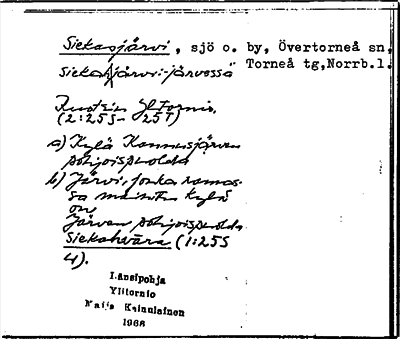 Siekasjärvi, sjö o. by, Övertorneå sn,
Siekasjärvi: -järvessä Torneå tg, Norrb.l.
Ruotsin Ylitornio.
(2:25S- 25T)
a) Kylä Kannusjärven
pohjoispuolella
b) Järvi, jonka rannas-
sa mainittu kylä
on
Järven pohjoispuolella
Siekahvåra (1:25S
4).
Länsipohja
Ylitornio
Maija Kainulainen
1968